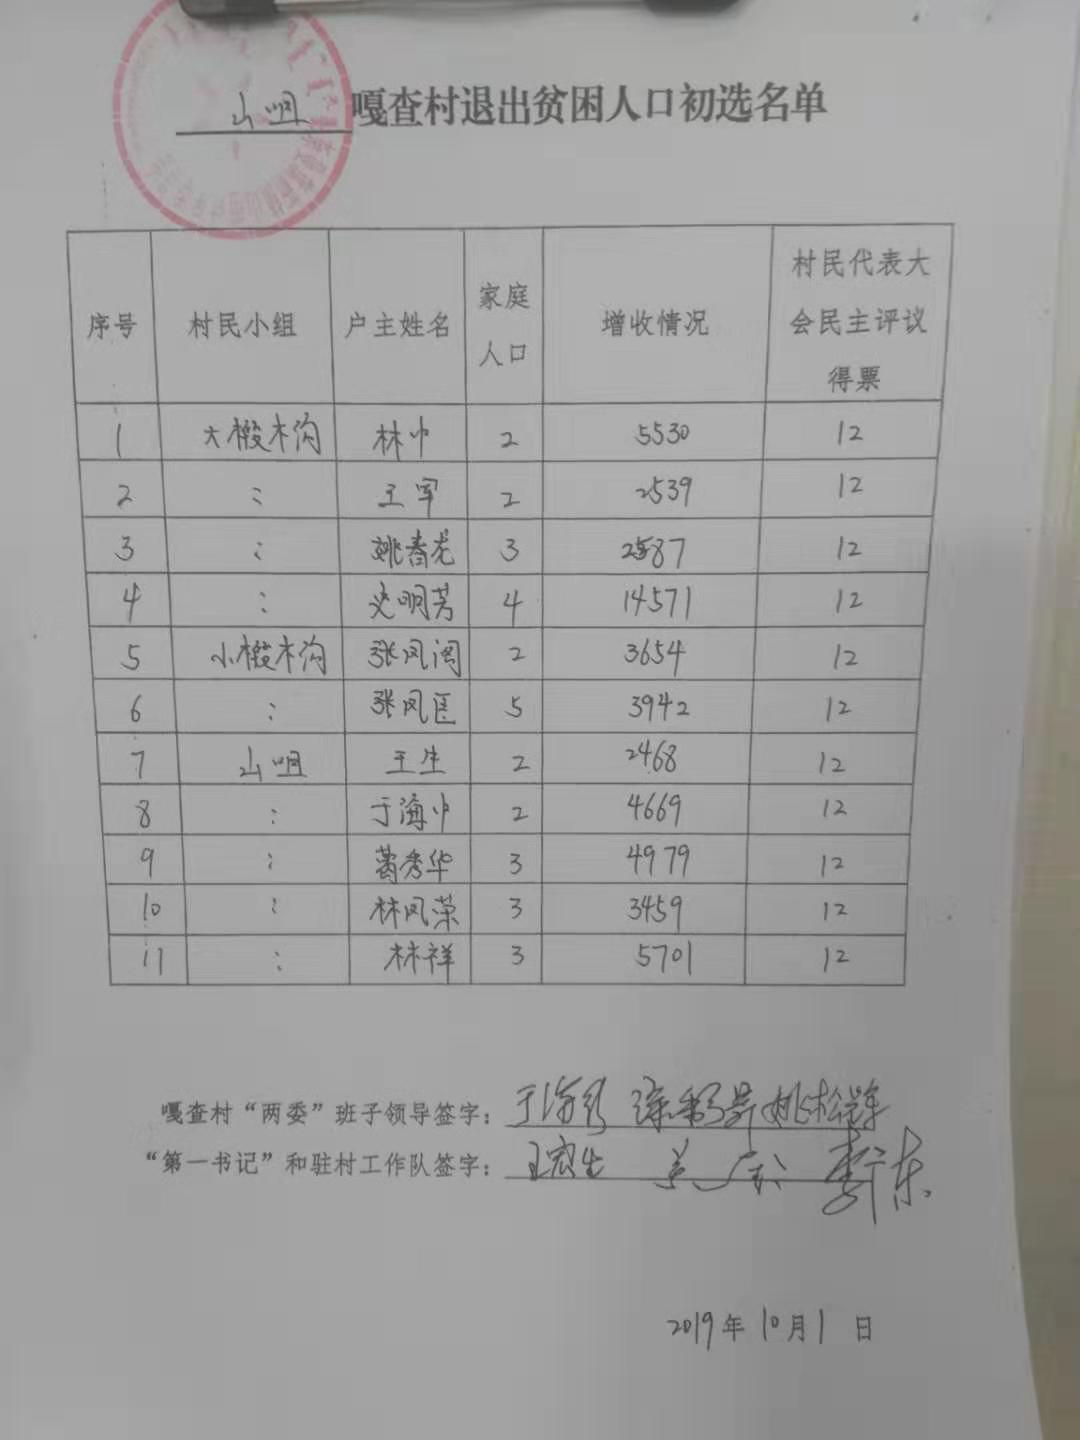 山咀 嘎查村退出贫困人口初选名单
序号 村民小组 户主姓名 家庭人口 增收情况 村民代表大会民主评议得票
1 大椴木沟 林中 2 5530 12
2 〃 王军 2 2539 12
3 〃 姚春龙 3 2587 12
4 〃 史明芳 4 14571 12
5 小椴木沟 张凤阁 2 3654 12
6 〃 张凤臣 5 3942 12
7 山咀 王生 2 2468 12
8 〃 于海中 2 4669 12
9 〃 葛秀华 3 4979 12
10 〃 林凤荣 3 3459 12
11 〃 林祥 3 5701 12
嘎查村“两委”班子领导签字：
“第一书记”和驻村工作队签字：
2019年10月1日